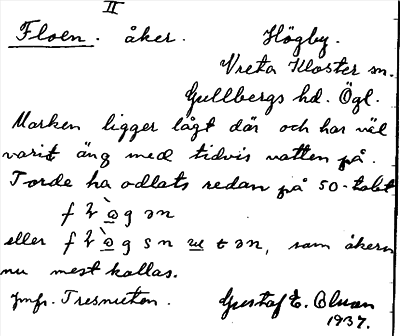 II
Floen. åker. Högby.
Vreta Kloster sn.
Gullbergs hd. Ögl.
Marken ligger lågt där och har väl
varit äng med tidvis vatten på.
Torde ha odlats redan på 50-talet
eller som åkern
nu mest kallas.
Jmfr. Tresnuten. Gustaf E. Bluan
1937.